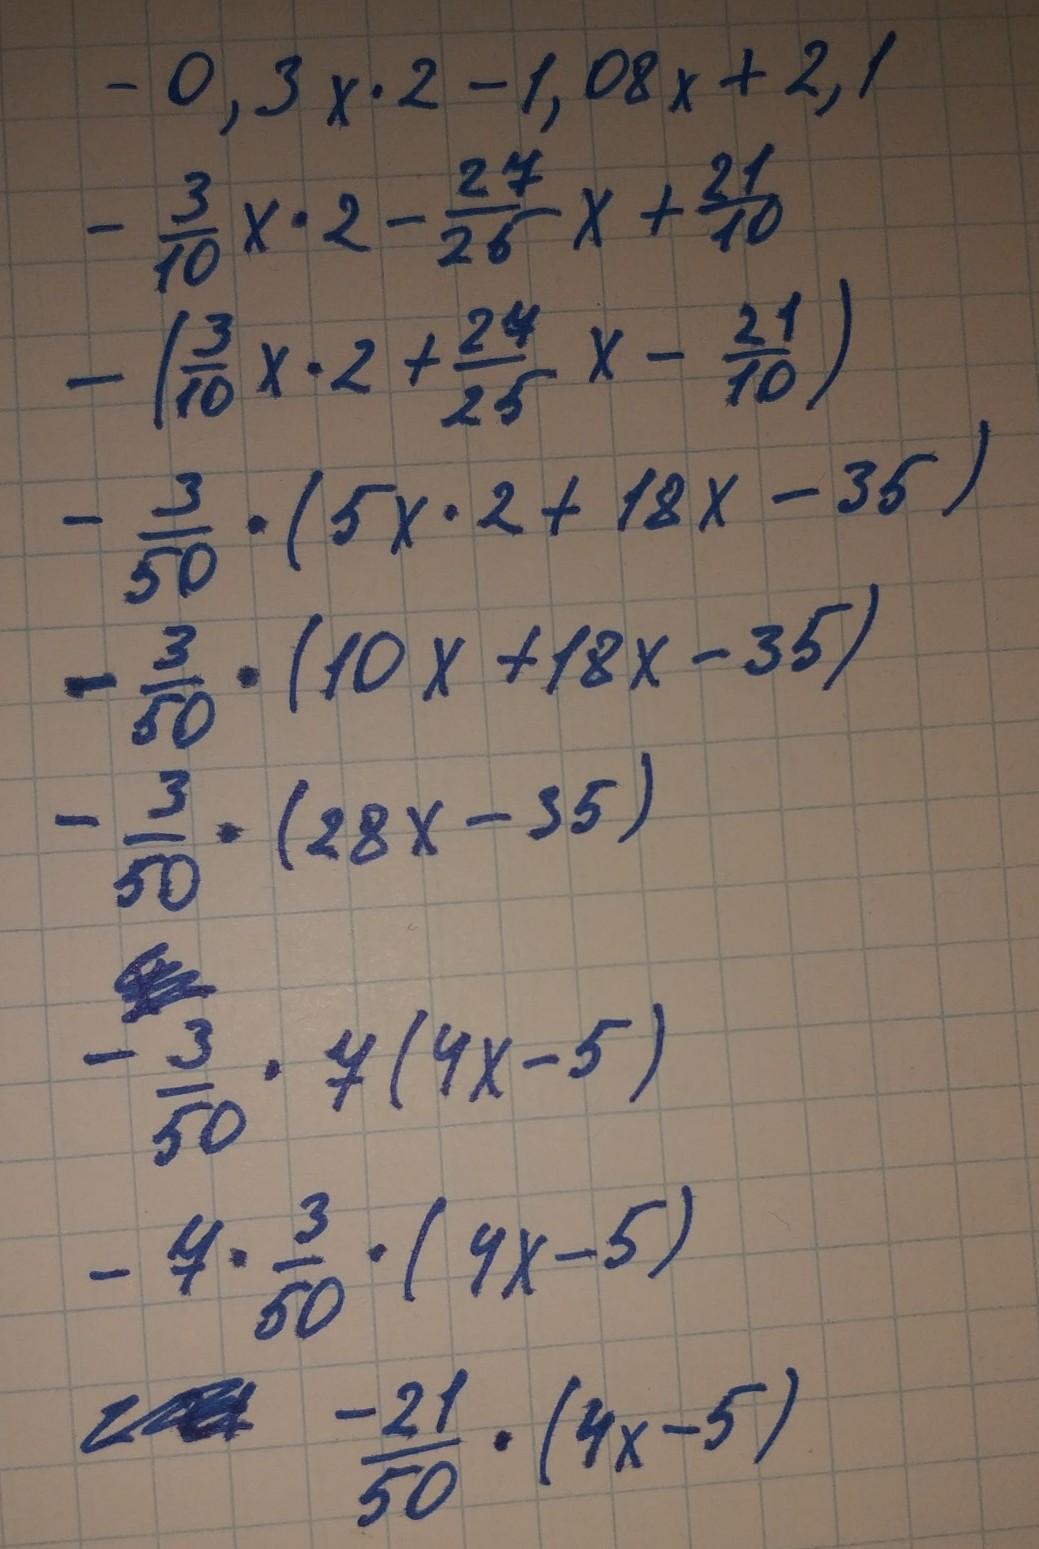 - 0,3x·2 - 1,08x + 2,1
- 3/10 x·2 - 27/25 x + 21/10
- (3/10 x·2 + 27/25 x - 21/10)
- 3/50 · (5x·2 + 18x - 35)
- 3/50 · (10x + 18x - 35)
- 3/50 · (28x - 35)
- 3/50 · 7(4x - 5)
- 7 · 3/50 · (4x - 5)
-21/50 · (4x - 5)